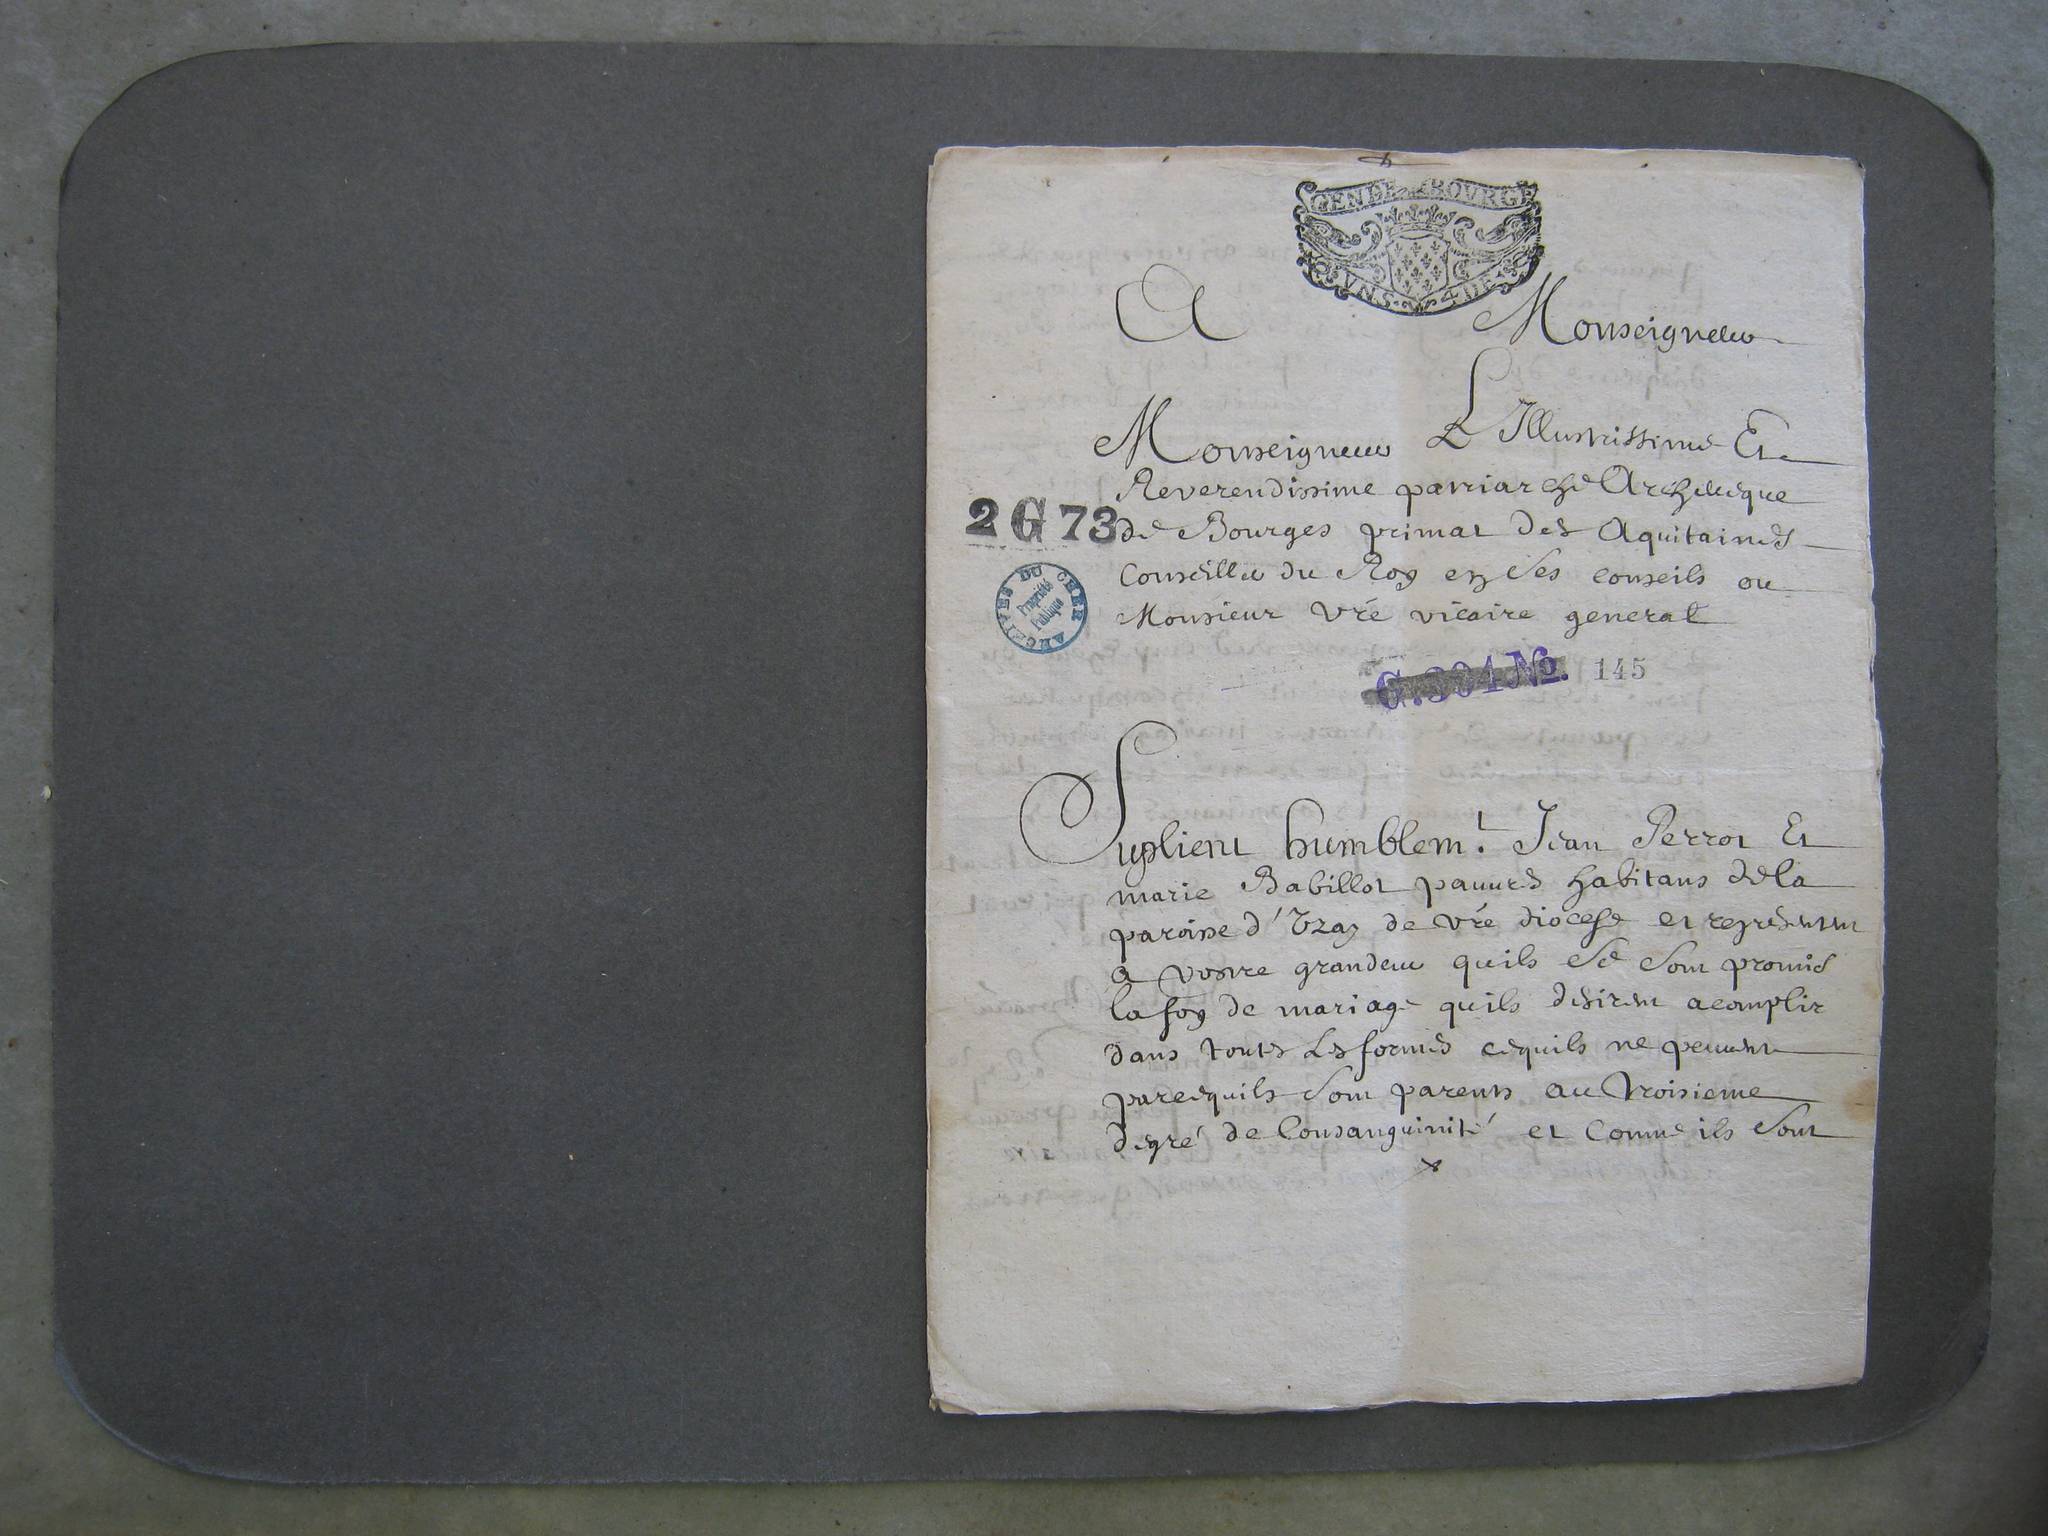 GEN DE BOVRGE
VN S. 4 DE
A Monseigneur
Monseigneur L Illustrissime Et
Reverendissime patriarche Archeuesque
2 G 73
de Bourges primat des Aquitaines
Conseiller du Roy en ses conseils ou
Monsieur vre vicaire general
ARCHIVES DU CHER
Propriété
Publique
G. 304 No. 145
Suplient humblemt. Jean Perrot Et
marie Babillot pauures habitans dela
paroisse d'Vzay de vre diocese et representent
a vostre grandeur quils se sont promis
la foy de mariage quils desirent acomplir
dans toutes les formes cequils ne peuuent
parcequils sont parents au troisieme
degré de Consanguinité et Comme ils sont